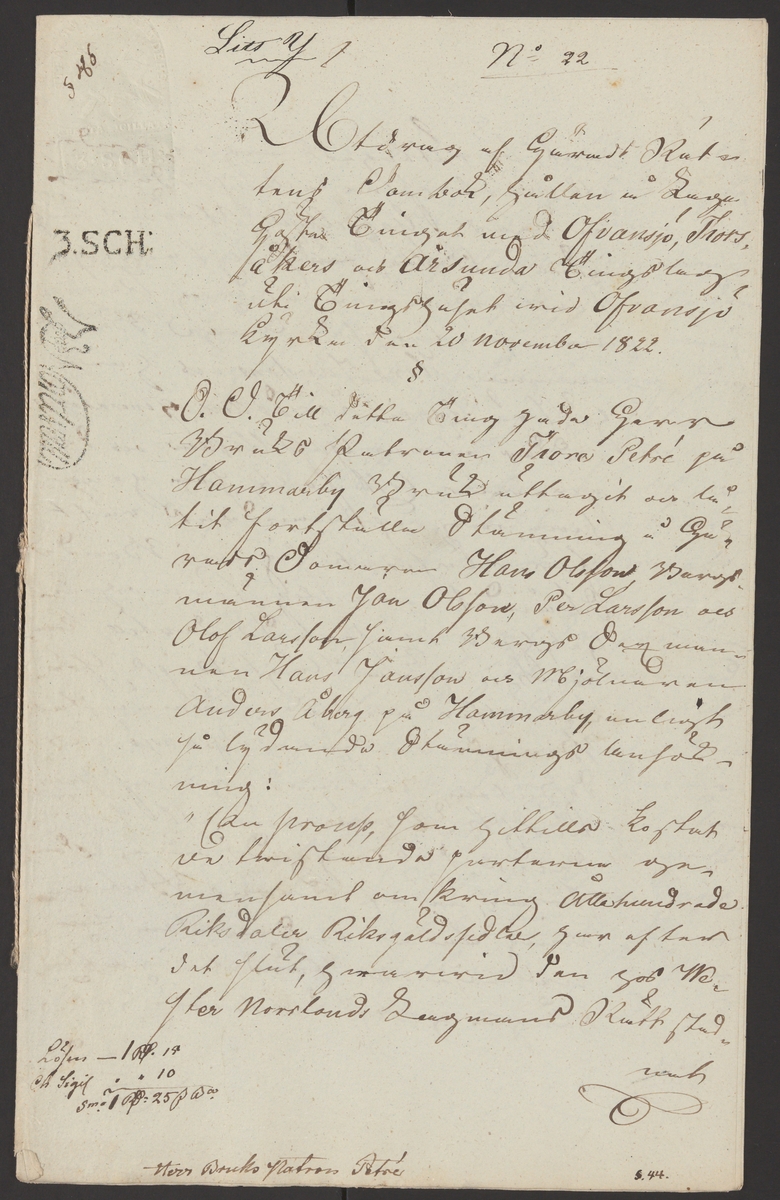 Litt Y
No 22
§ 46
Utdrag af Härads Rät-
tens Dombok, hållen å Laga
Hösten Tinget med Ofvansjö, Thors,
åkers och Årsunda Tingslag
uti Tingshuset vid Ofvansjö
Kyrka den 20 November 1822.
3.SCH:
§
S. D. Till detta Ting hade Herr
Bruks Patronen Thore Petré på
Hammarby Bruk uttagit och lå-
tit fortställa Stämning å Hä-
rads Domaren Hans Olsson, Bergs-
männen Jan Olsson, Per Larsson och
Olof Larsson, samt Bergs Dogman-
nen Hans Jansson och Mjölnaren
Anders Åberg på Hammarby, enligt
så lydande Stämnings ansök-
ning:
"En process, som hittills kostat
de tvistande parterna ge-
mensamt omkring Ållahundrade
Riksdaler Riksgäldssedlar, har efter
det slut, hvarvid den hos We-
ster Norrlands Lagmans Rätt stad-
nat
Lösen — 1 Rd. 15
Ch Sigil " " 10
Sma 1 Rd: 25 ß Bco
Herr Bruks Patron Petré
S. 44.